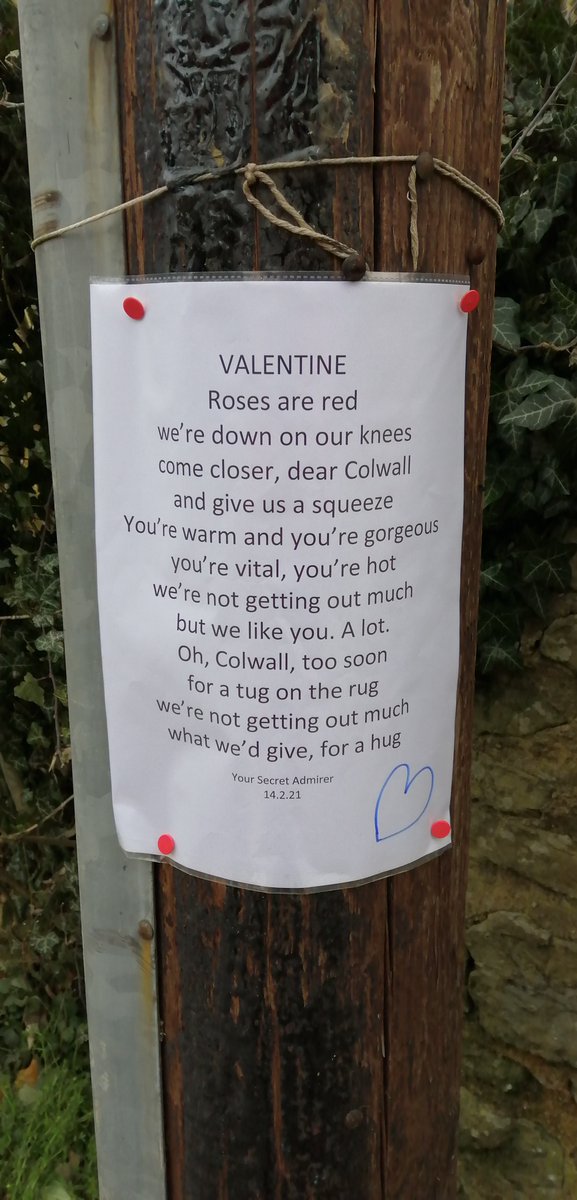 VALENTINE
Roses are red
we're down on our knees
come closer, dear Colwall
and give us a squeeze
You're warm and you're gorgeous
you're vital, you're hot
we're not getting out much
but we like you. A lot.
Oh, Colwall, too soon
for a tug on the rug
we're not getting out much
what we'd give, for a hug
Your Secret Admirer
14.2.21